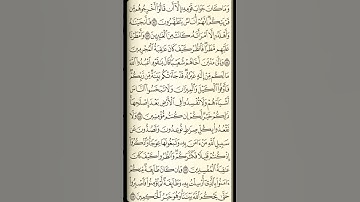 وَمَا كَانَ جَوَابَ قَوْمِهِۦٓ إِلَّآ أَن قَالُوٓا۟ أَخْرِجُوهُم مِّن
قَرْيَتِكُمْ إِنَّهُمْ أُنَاسٌ يَتَطَهَّرُونَ ٨٢ فَأَنجَيْنَٰهُ
وَأَهْلَهُۥٓ إِلَّا ٱمْرَأَتَهُۥ كَانَتْ مِنَ ٱلْغَٰبِرِينَ ٨٣ وَأَمْطَرْنَا
عَلَيْهِم مَّطَرًا فَٱنظُرْ كَيْفَ كَانَ عَٰقِبَةُ ٱلْمُجْرِمِينَ ٨٤
وَإِلَىٰ مَدْيَنَ أَخَاهُمْ شُعَيْبًا قَالَ يَٰقَوْمِ ٱعْبُدُوا۟ ٱللَّهَ
مَا لَكُم مِّنْ إِلَٰهٍ غَيْرُهُۥ قَدْ جَآءَتْكُم بَيِّنَةٌ مِّن رَّبِّكُمْ
فَأَوْفُوا۟ ٱلْكَيْلَ وَٱلْمِيزَانَ وَلَا تَبْخَسُوا۟ ٱلنَّاسَ
أَشْيَآءَهُمْ وَلَا تُفْسِدُوا۟ فِى ٱلْأَرْضِ بَعْدَ إِصْلَٰحِهَا
ذَٰلِكُمْ خَيْرٌ لَّكُمْ إِن كُنتُم مُّؤْمِنِينَ ٨٥ وَلَا
تَقْعُدُوا۟ بِكُلِّ صِرَٰطٍ تُوعِدُونَ وَتَصُدُّونَ عَن
سَبِيلِ ٱللَّهِ مَنْ ءَامَنَ بِهِۦ وَتَبْغُونَهَا عِوَجًا وَٱذْكُرُوٓا۟
إِذْ كُنتُمْ قَلِيلًا فَكَثَّرَكُمْ وَٱنظُرُوا۟ كَيْفَ كَانَ
عَٰقِبَةُ ٱلْمُفْسِدِينَ ٨٦ وَإِن كَانَ طَآئِفَةٌ مِّنكُمْ
ءَامَنُوا۟ بِٱلَّذِىٓ أُرْسِلْتُ بِهِۦ وَطَآئِفَةٌ لَّمْ يُؤْمِنُوا۟ فَٱصْبِرُوا۟
حَتَّىٰ يَحْكُمَ ٱللَّهُ بَيْنَنَا وَهُوَ خَيْرُ ٱلْحَٰكِمِينَ ٨٧